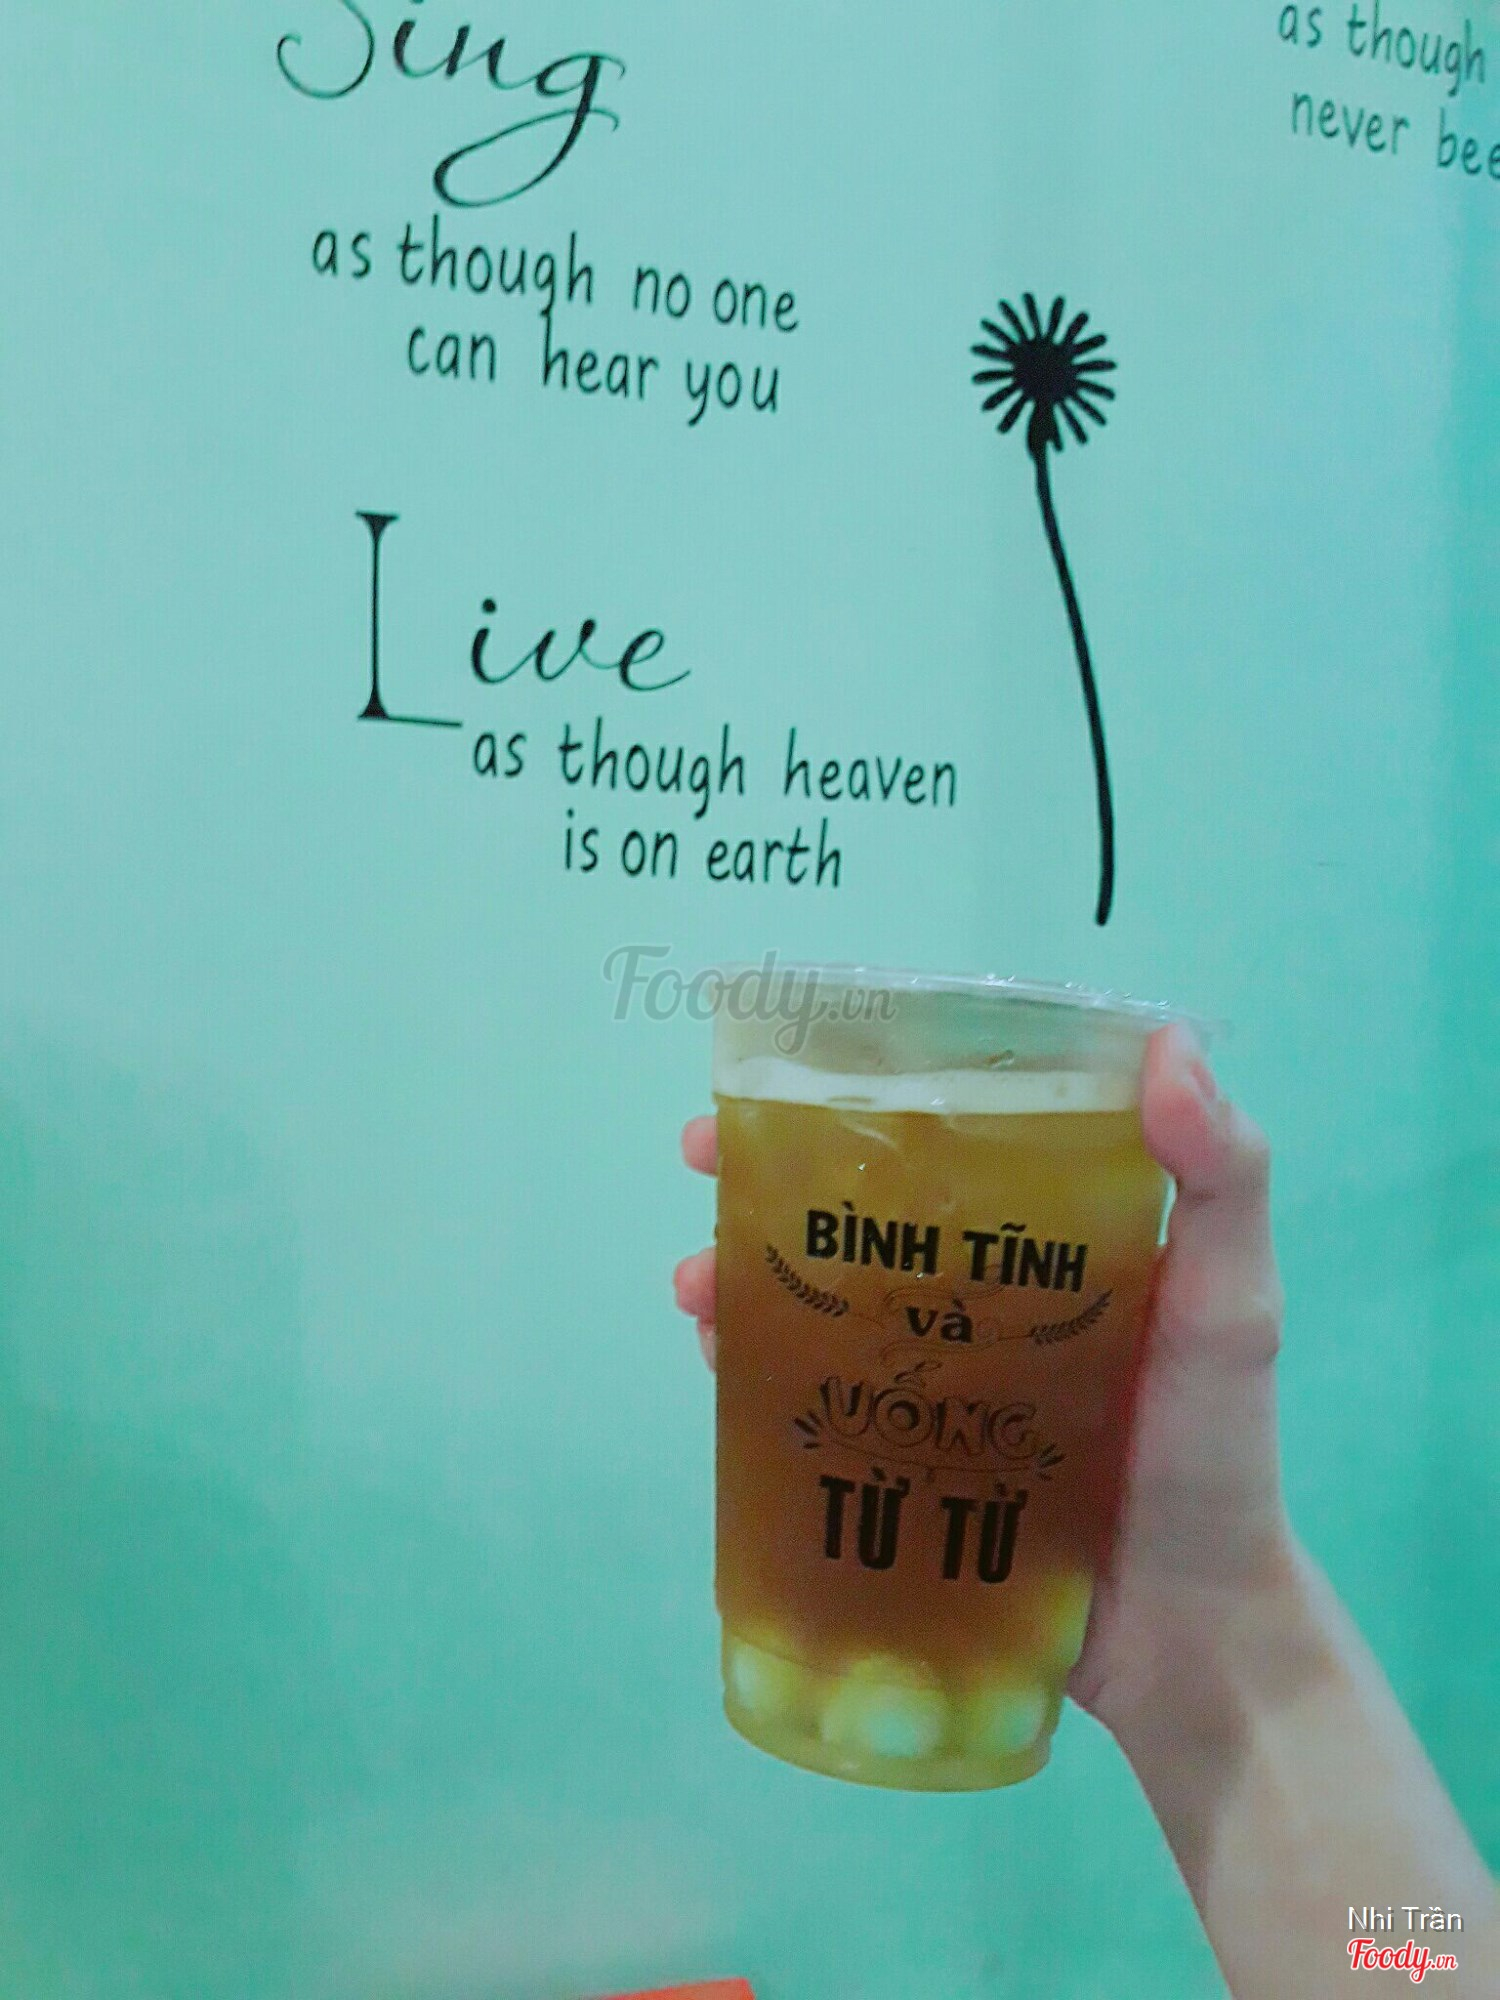 Sing
as though no one
can hear you
as though
never bee
Live
as though heaven
is on earth
Foody.vn
BÌNH TĨNH
và
UỐNG
TỪ TỪ
Nhi Trần
Foody.vn